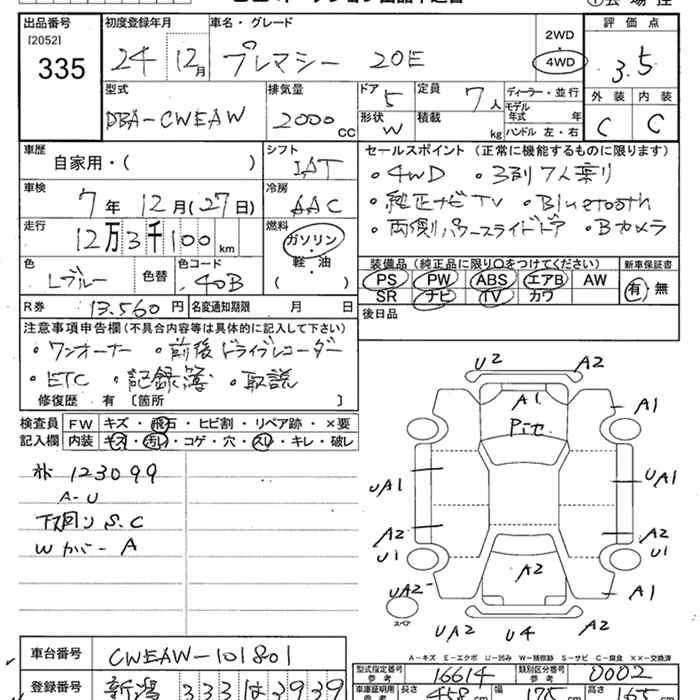 出品番号 初度登録年月 車名・グレード 2WD 評価点
[2052] 335 24 12月 プレマシー 20E 4WD 3.5
型式 DBA-CWEAW 排気量 2000cc ドア 5 定員 7人 ディーラー・並行 外装 内装
形状 W 積載 kg モデル年式 年 C C
ハンドル 左・右
車歴 自家用・( ) シフト IAT セールスポイント (正常に機能するものに限ります)
・4WD ・3列7人乗り
車検 7年12月(27日) 冷房 AAC ・純正ナビTV ・Bluetooth
走行 12万3千100km 燃料 ガソリン・軽・油 ( ) ・両側パワースライドドア ・Bカメラ
色 Lブルー 色替 色コード 40B 装備品(純正品に限り○をつけてください) 新車保証書
PS PW ABS エアB AW 有・無
SR ナビ TV カワ
R券 13,560円 名変通知期限 月 日 後日品
注意事項申告欄(不具合内容等は具体的に記入して下さい)
・ワンオーナー ・前後ドライブレコーダー
・ETC ・記録簿 ・取説
修復歴 有 [箇所 ]
検査員 FW キズ・飛石・ヒビ割・リペア跡・×要
記入欄 内装 キズ・汚レ・コゲ・穴・スレ・キレ・破レ
123099
A-U
下廻り S.C
Wカバー A
U2 A2
A1 A1
Pit
UA1 UA1
A2 A2
U1 U1
A2
UA2 A1
スペア
UA2 U4 A2
A-キズ E-エクボ U-凹み W-補修跡 S-サビ C-腐食 ××-交換済
車台番号 CWEAW-101801 型式指定番号 参考 16614 類別区分番号 参考 0002
登録番号 新潟 333 は 3939 車庫証明用 参考 長さ 458 cm 幅 175 cm